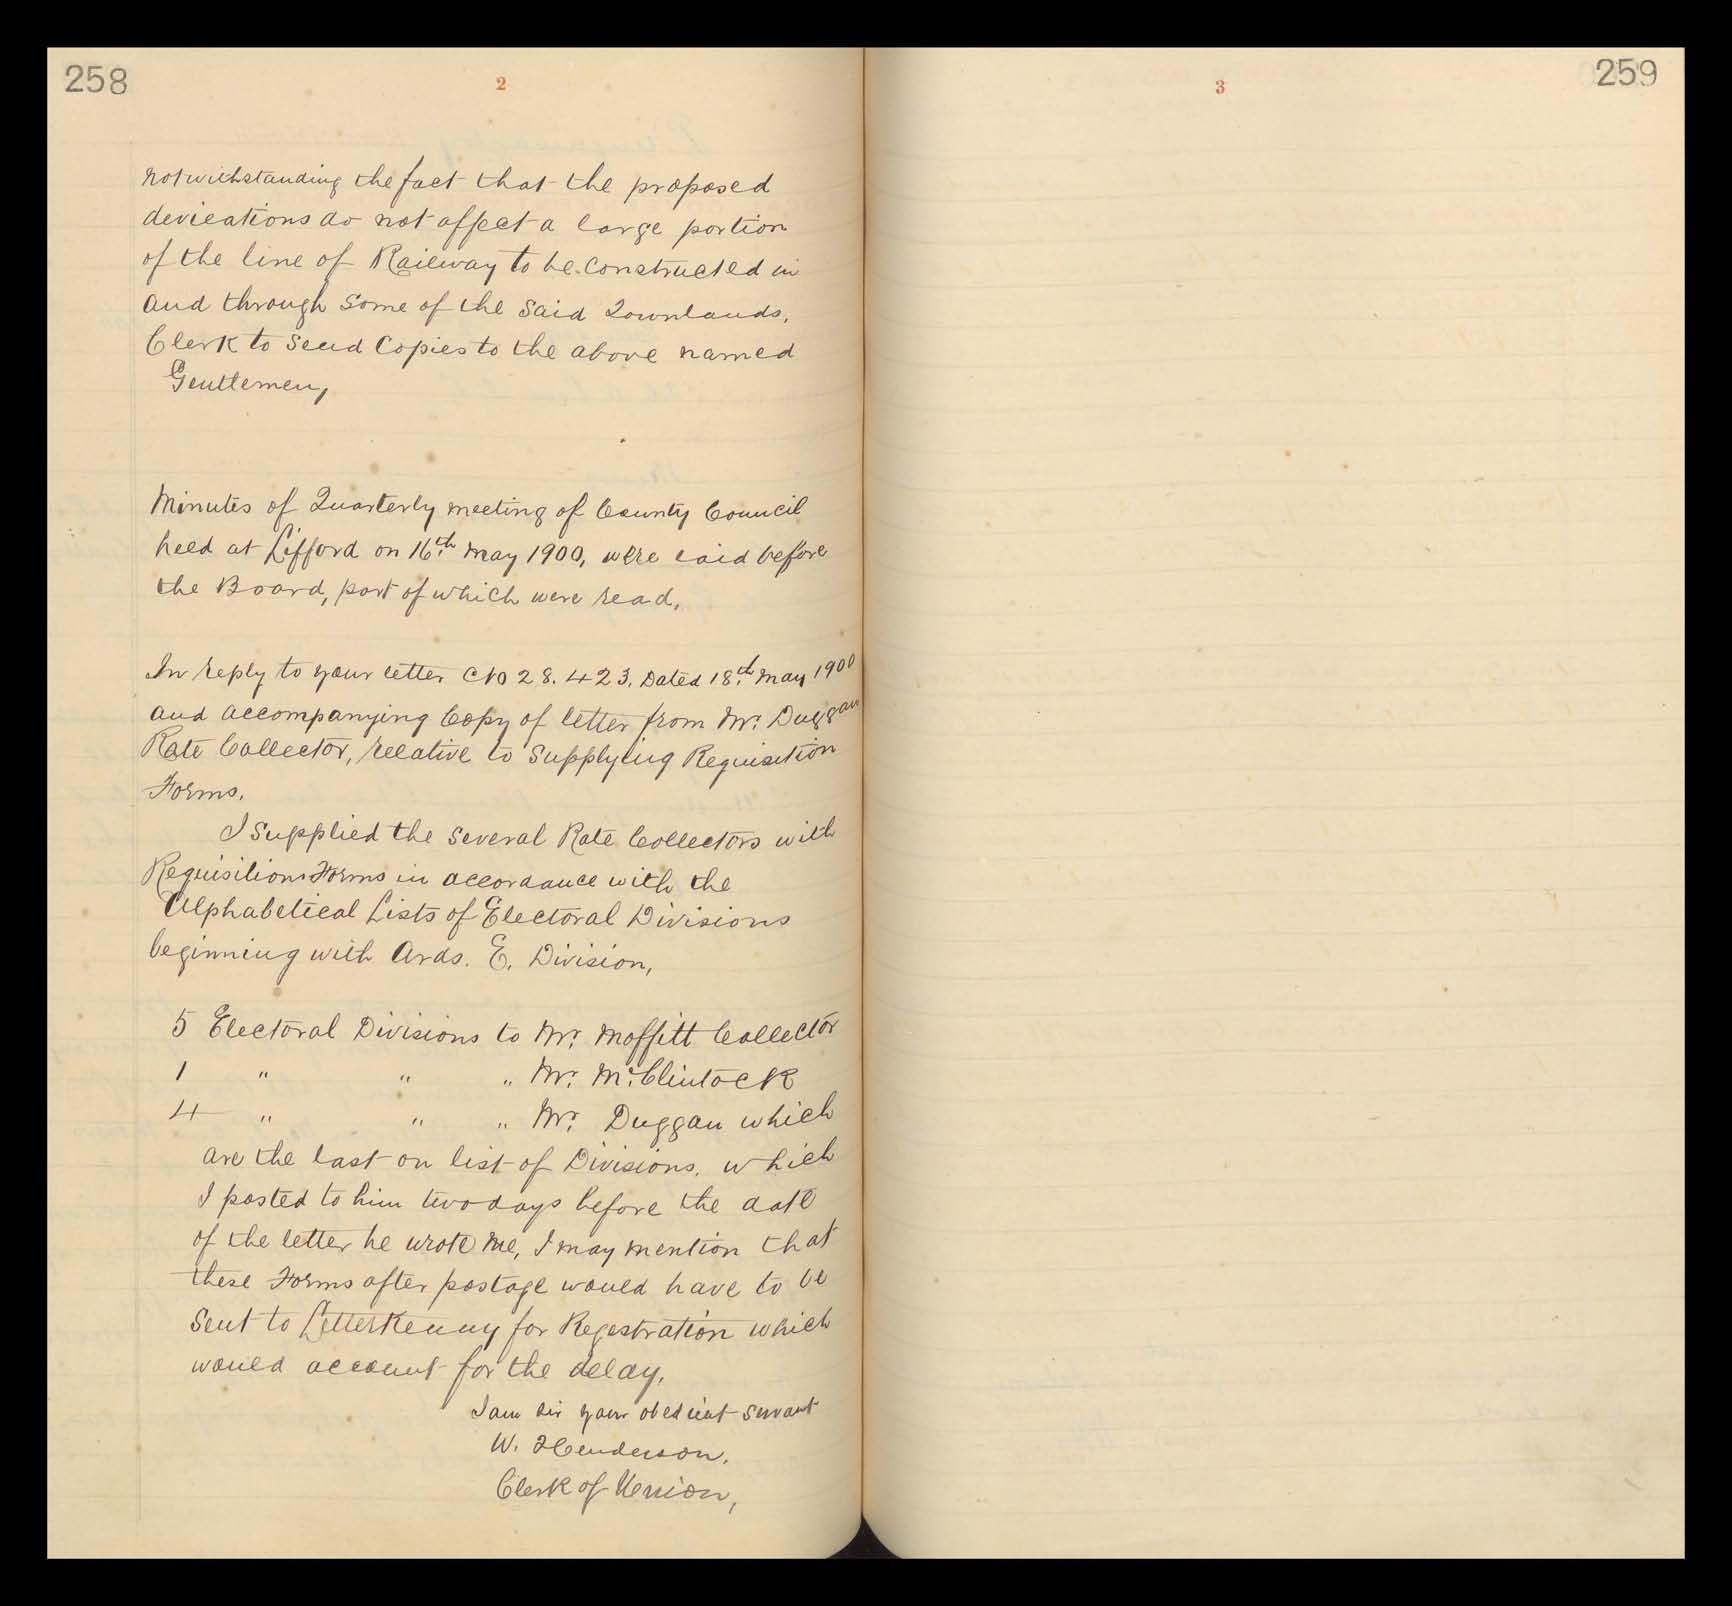 258
2
notwithstanding the fact that the proposed
devieations do not affect a large portion
of the line of Railway to be constructed in
and through some of the said Townlands.
Clerk to send Copies to the above named
Gentlemen,
Minutes of Quarterly meeting of County Council
held at Lifford on 16th May 1900, were laid before
the Board, part of which were read.
In reply to your letter No 28.423. Dated 18th May 1900
and accompanying Copy of letter from Mr. Duggan
Rate Collector, relative to Supplying Requisition
Forms.
I Supplied the several Rate Collectors with
Requisition Forms in accordance with the
Alphabetical Lists of Electoral Divisions
beginning with Ards. E. Division,
5 Electoral Divisions to Mr. Moffitt Collector
1 " " " Mr. McClintock
4 " " " Mr. Duggan which
are the last on list of Divisions. which
I posted to him two days before the date
of the letter he wrote me, I may mention that
these Forms after postage would have to be
Sent to Letterkenny for Regestration which
would account for the delay.
I am sir your obedient servant
W. Henderson.
Clerk of Union,
3
259